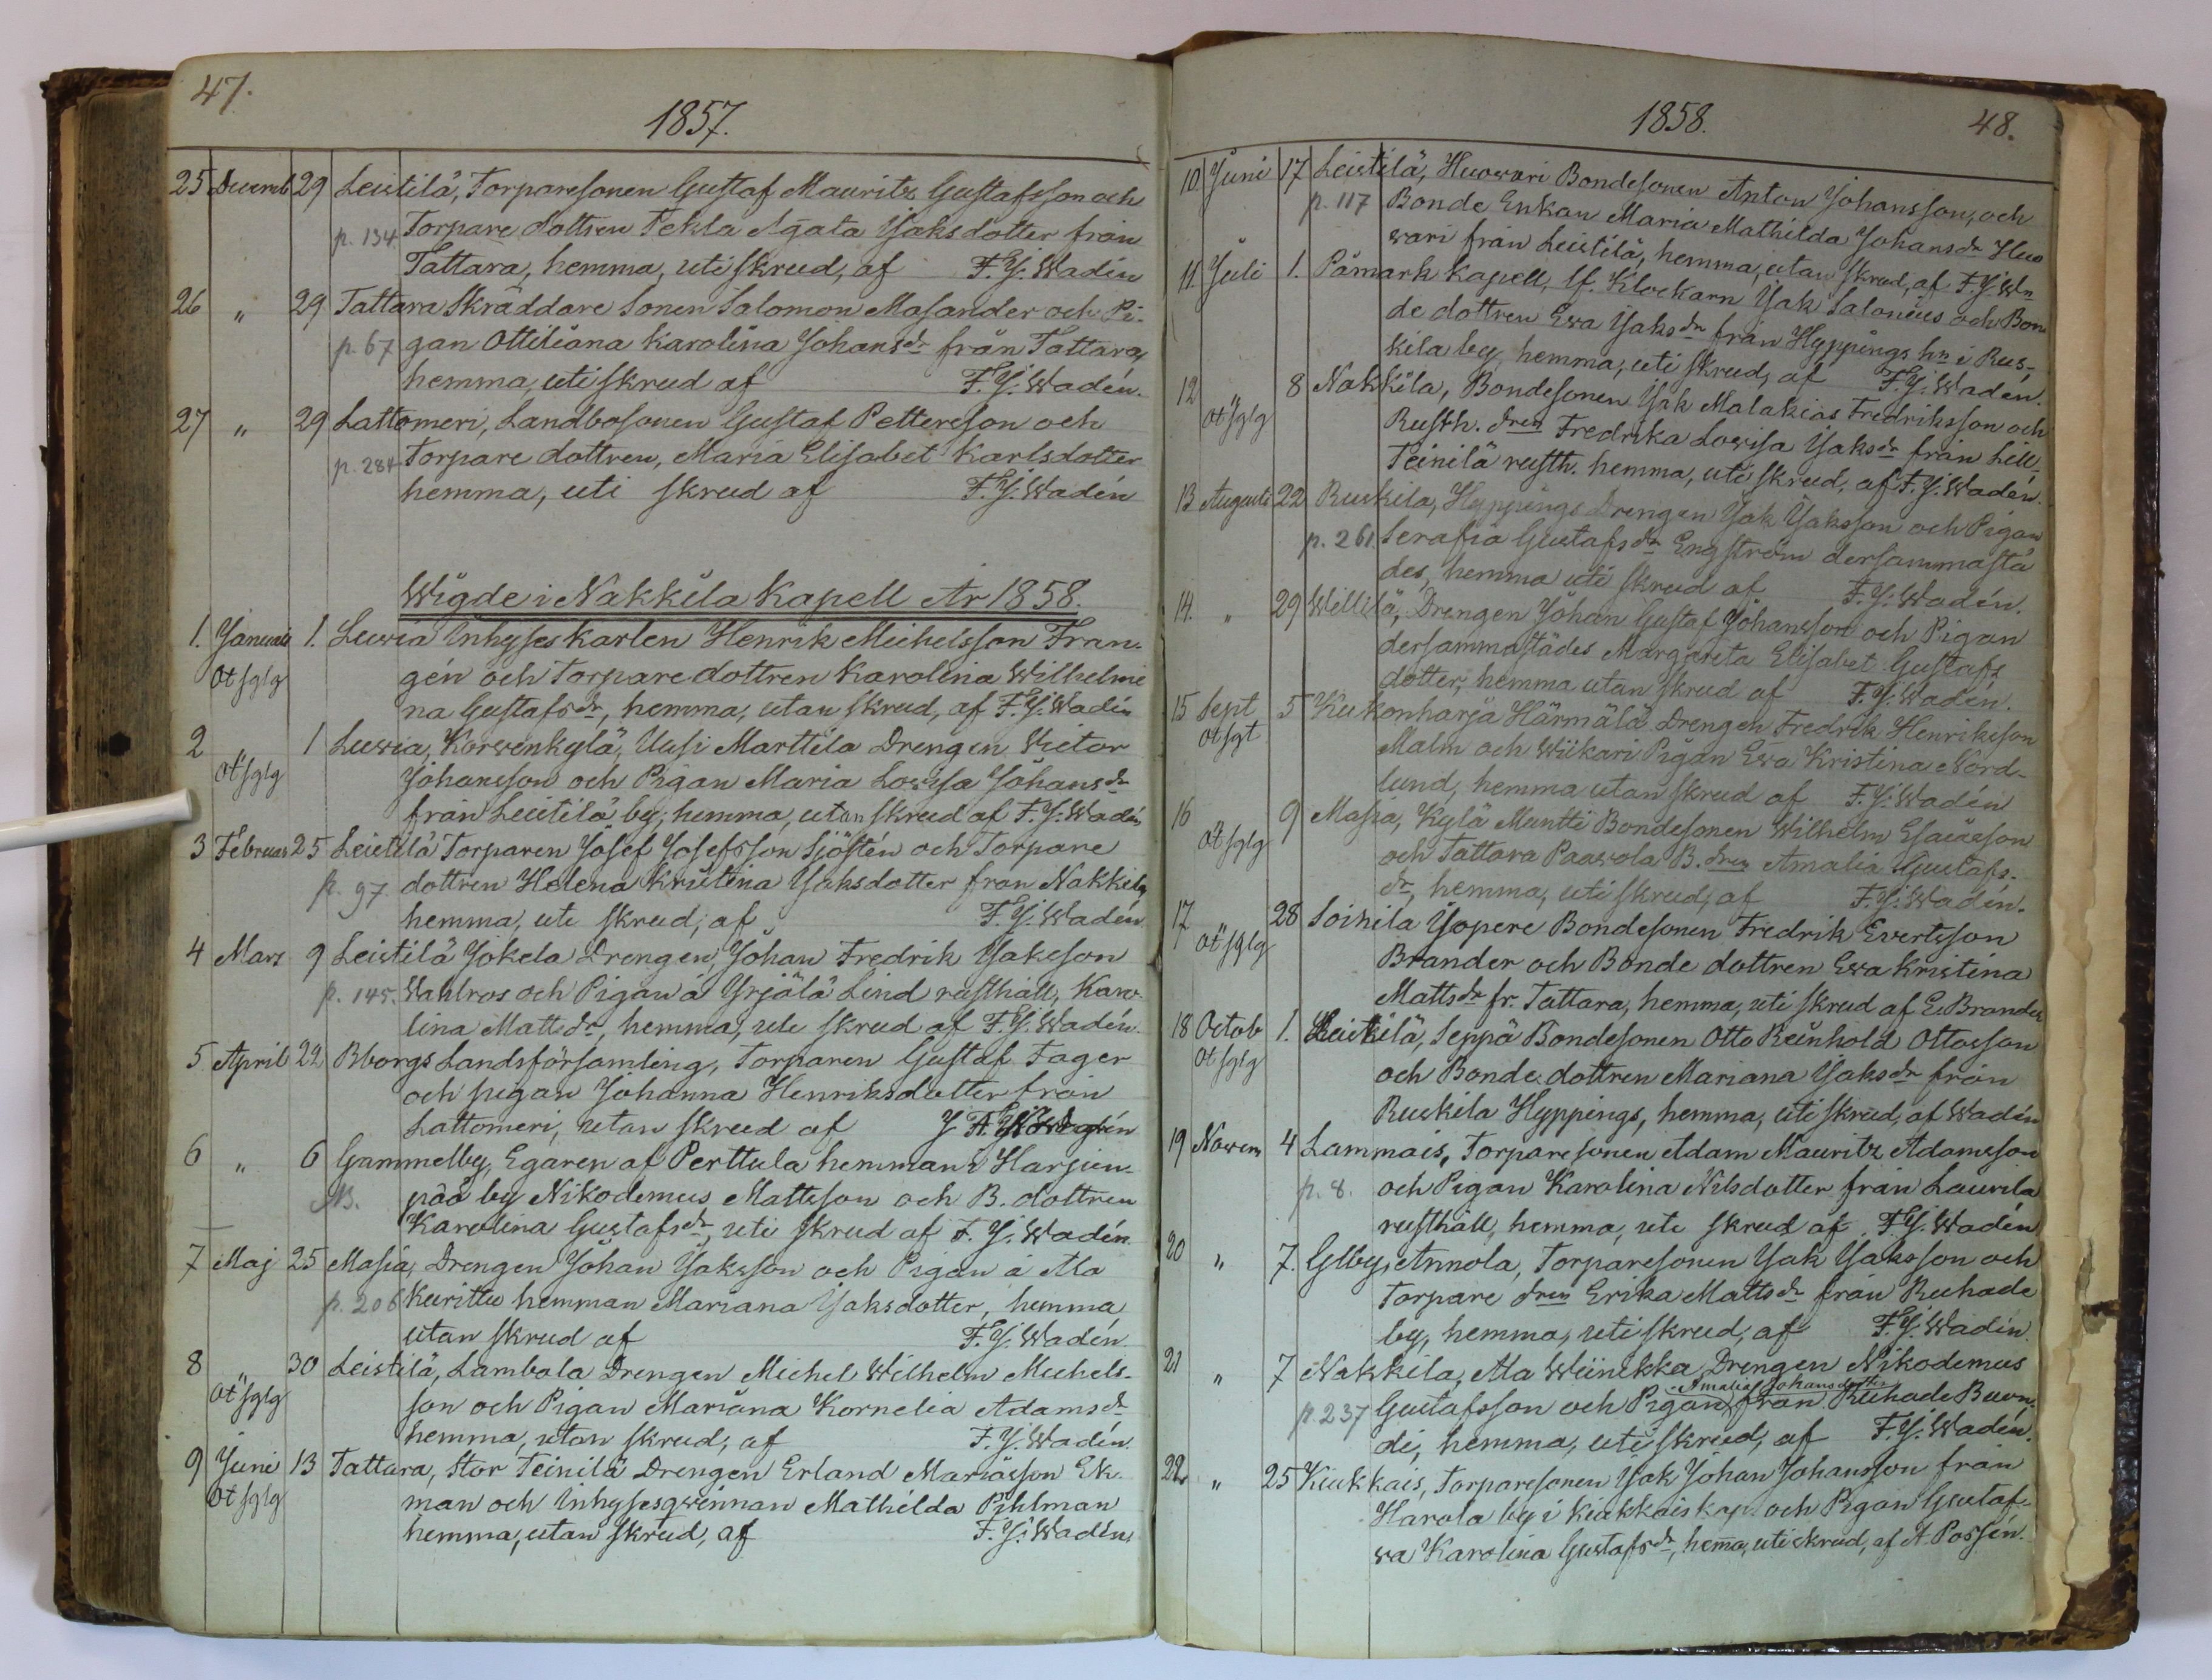 47.
1857.
25 Decemb 29 Leistilä, Torparesonen Gustaf Mauritz Gustafsson och
p. 134 Torpare dottren Tekla Agata Jaksdotter från
Tattara, hemma, uti skrud, af F. J. Wadén
26 " 29 Tattara Skräddare Sonen Salomon Masander och Pi-
p. 67 gan Ottiliana Karolina Johansdr från Tattara,
hemma, uti skrud af F. J. Wadén.
27 " 29 Lattomeri, Landbosonen Gustaf Pettersson och
p. 284 Torpare dottren, Maria Elisabet Karlsdotter
hemma, uti skrud af F. J. Wadén
Wigde i Nakkila Kapell År 1858.
1. Januari 1. Luvia Inhyses karlen Henrik Michelsson Fran-
Otsglg gén och Torpare dottren Karolina Wilhelmi
na Gustafsdr, hemma, utan skrud, af F. J. Wadén
2 " 1 Luvia, Korwenkylä, Uusi Marttila Drengen Victor
Otsglg Johansson och Pigan Maria Lovisa Johansdr
från Leistilä by, hemma, utan skrud af F. J. Wadén
3 Februari 25 Leistilä Torparen Josef Josefsson Sjöstén och Torpare
p. 97. dottren Helena Kristina Jaksdotter från Nakkila,
hemma, uti skrud, af F. J. Wadén
4 Mars 9 Leistilä Jokela Drengen, Johan Fredrik Jaksson
p. 145. Wahlros och Pigan å Yrjälä Lind rusthåll, Karo-
lina Mattsdr, hemma, uti skrud af F. J. Wadén.
5 April 22 Bborgs Landsförsamling, Torparen Gustaf Fager
och pigan Johanna Henriksdotter från
Lattomeri, utan skrud af
6 " 6 Gammelby, Egaren af Perttula hemman i Harjun-
NB. pää by Nikodemus Mattsson och B. dottren
Karolina Gustafsdr, uti skrud af F. J. Wadén
7 Maj 25 Masia, Drengen Johan Jaksson och Pigan å Ala
p. 206 Kurittu hemman Mariana Jaksdotter, hemma
utan skrud af F. J. Wadén.
8 " 30 Leistilä, Lambola Drengen Michel Wilhelm Michels-
Otsglg son och Pigan Mariana Kornelia Adamsdr
hemma, utan skrud, af F. J. Wadén.
9 Juni 13 Tattara, Stor Teinilä Drengen Erland Mariasson Ek-
Otsglg man och Inhysesqwinnan Mathilda Pihlman
hemma, utan skrud, af F. J. Wadén,
1858. 48.
10 Juni 17 Leistilä, Huovari Bondesonen Anton Johansson, och
p. 117 Bonde Enkan Maria Mathilda Johansdr Huo
vari från Leistilä, hemma, utan skrud, af F. J. Wn
11. Juli 1. Påmark Kapell, lf. Klockarn Jak Salonius och Bon
de dottren Ewa Jaksdr från Hyppings hn i Rus-
kila by, hemma, uti skrud, af F. J. Wadén.
12 8 Nakkila, Bondesonen Jak Malakias Fredriksson och
Otsglg Rusth. dren Fredrika Lovisa Jaksdr från Lill-
Teinilä rusth. hemma, uti skrud, af F. J. Wadén.
13 Augusti 22 Ruskila, Hyppings Drengen Jak Jaksson och Pigan
p. 261. Serafia Gustafsdr Engström dersammastä
des, hemma uti skrud af F. J. Wadén.
14. " 29 Willilä, Drengen Johan Gustaf Johansson och Pigan
dersammastädes Margareta Elisabet Gustafs
dotter, hemma utan skrud af F. J. Wadén.
15 Sept 5 Kukonharja Härmälä Drengen Fredrik Henriksson
Otsgt Malm och Wiikari Pigan Ewa Kristina Nord-
lund, hemma utan skrud af F. J. Wadén
16 9 Masia, Kylä Muntti Bondesonen Wilhelm Esaiasson
Otsglg och Tattara Paavola B. dren Amalia Gustafs-
dr, hemma, uti skrud, af F. J. Wadén.
17 " 28 Soinila Jopere Bondesonen Fredrik Evertsson
Otsglg Brander och Bonde dottren Ewa Kristina
Mattsdr fr. Tattara, hemma, uti skrud af E. Brander
18 Octob 1. Leistilä, Seppä Bondesonen Otto Reinhold Ottosson
Otsglg och Bonde dottren Mariana Jaksdr från
Ruskila Hyppings, hemma, uti skrud, af Wadén
19 Novem 4 Lammais, Torparesonen Adam Mauritz Adamsson
p. 8. och Pigan Karolina Nilsdotter från Laurila
rusthåll, hemma, uti skrud af F. J. Wadén
20 " 7. Glby, Annola, Torparesonen Jak Jaksson och
Torpare dren Erika Mattsdr från Ruhade
by, hemma, uti skrud, af F. J. Wadén.
21 " 7 Nakkila, Ala Wiinikka Drengen Nikodemus
Amalia Johansdotter
p. 237 Gustafsson och Pigan från Ruhade Buon-
di, hemma, uti skrud, af F. J. Wadén.
22 " 25 Kiukkais, Torparesonen Jak Johan Johansson från
Harola by i Kiukkais kap. och Pigan Gustaf-
va Karolina Gustafsdr, hema, uti skrud, af A. Possén.